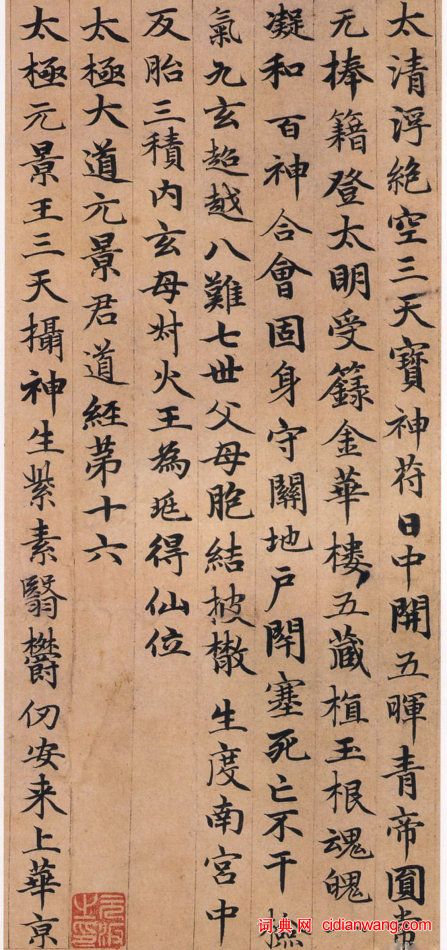 太清浮絕空三天寶神苻日中開五暉青帝圓常
无捧籍登太明受籙金華樓五藏植玉根魂魄
凝和百神合會固身守關地戶閇塞死亡不干
氣九玄超越八難七世父母胞結披散生度南宮中
反胎三積內玄母對火王為延得仙位
太極大道元景君道經苐十六
太極元景王三天攝神生紫素翳欝仞安来上華京
词典网 cidianwang.com